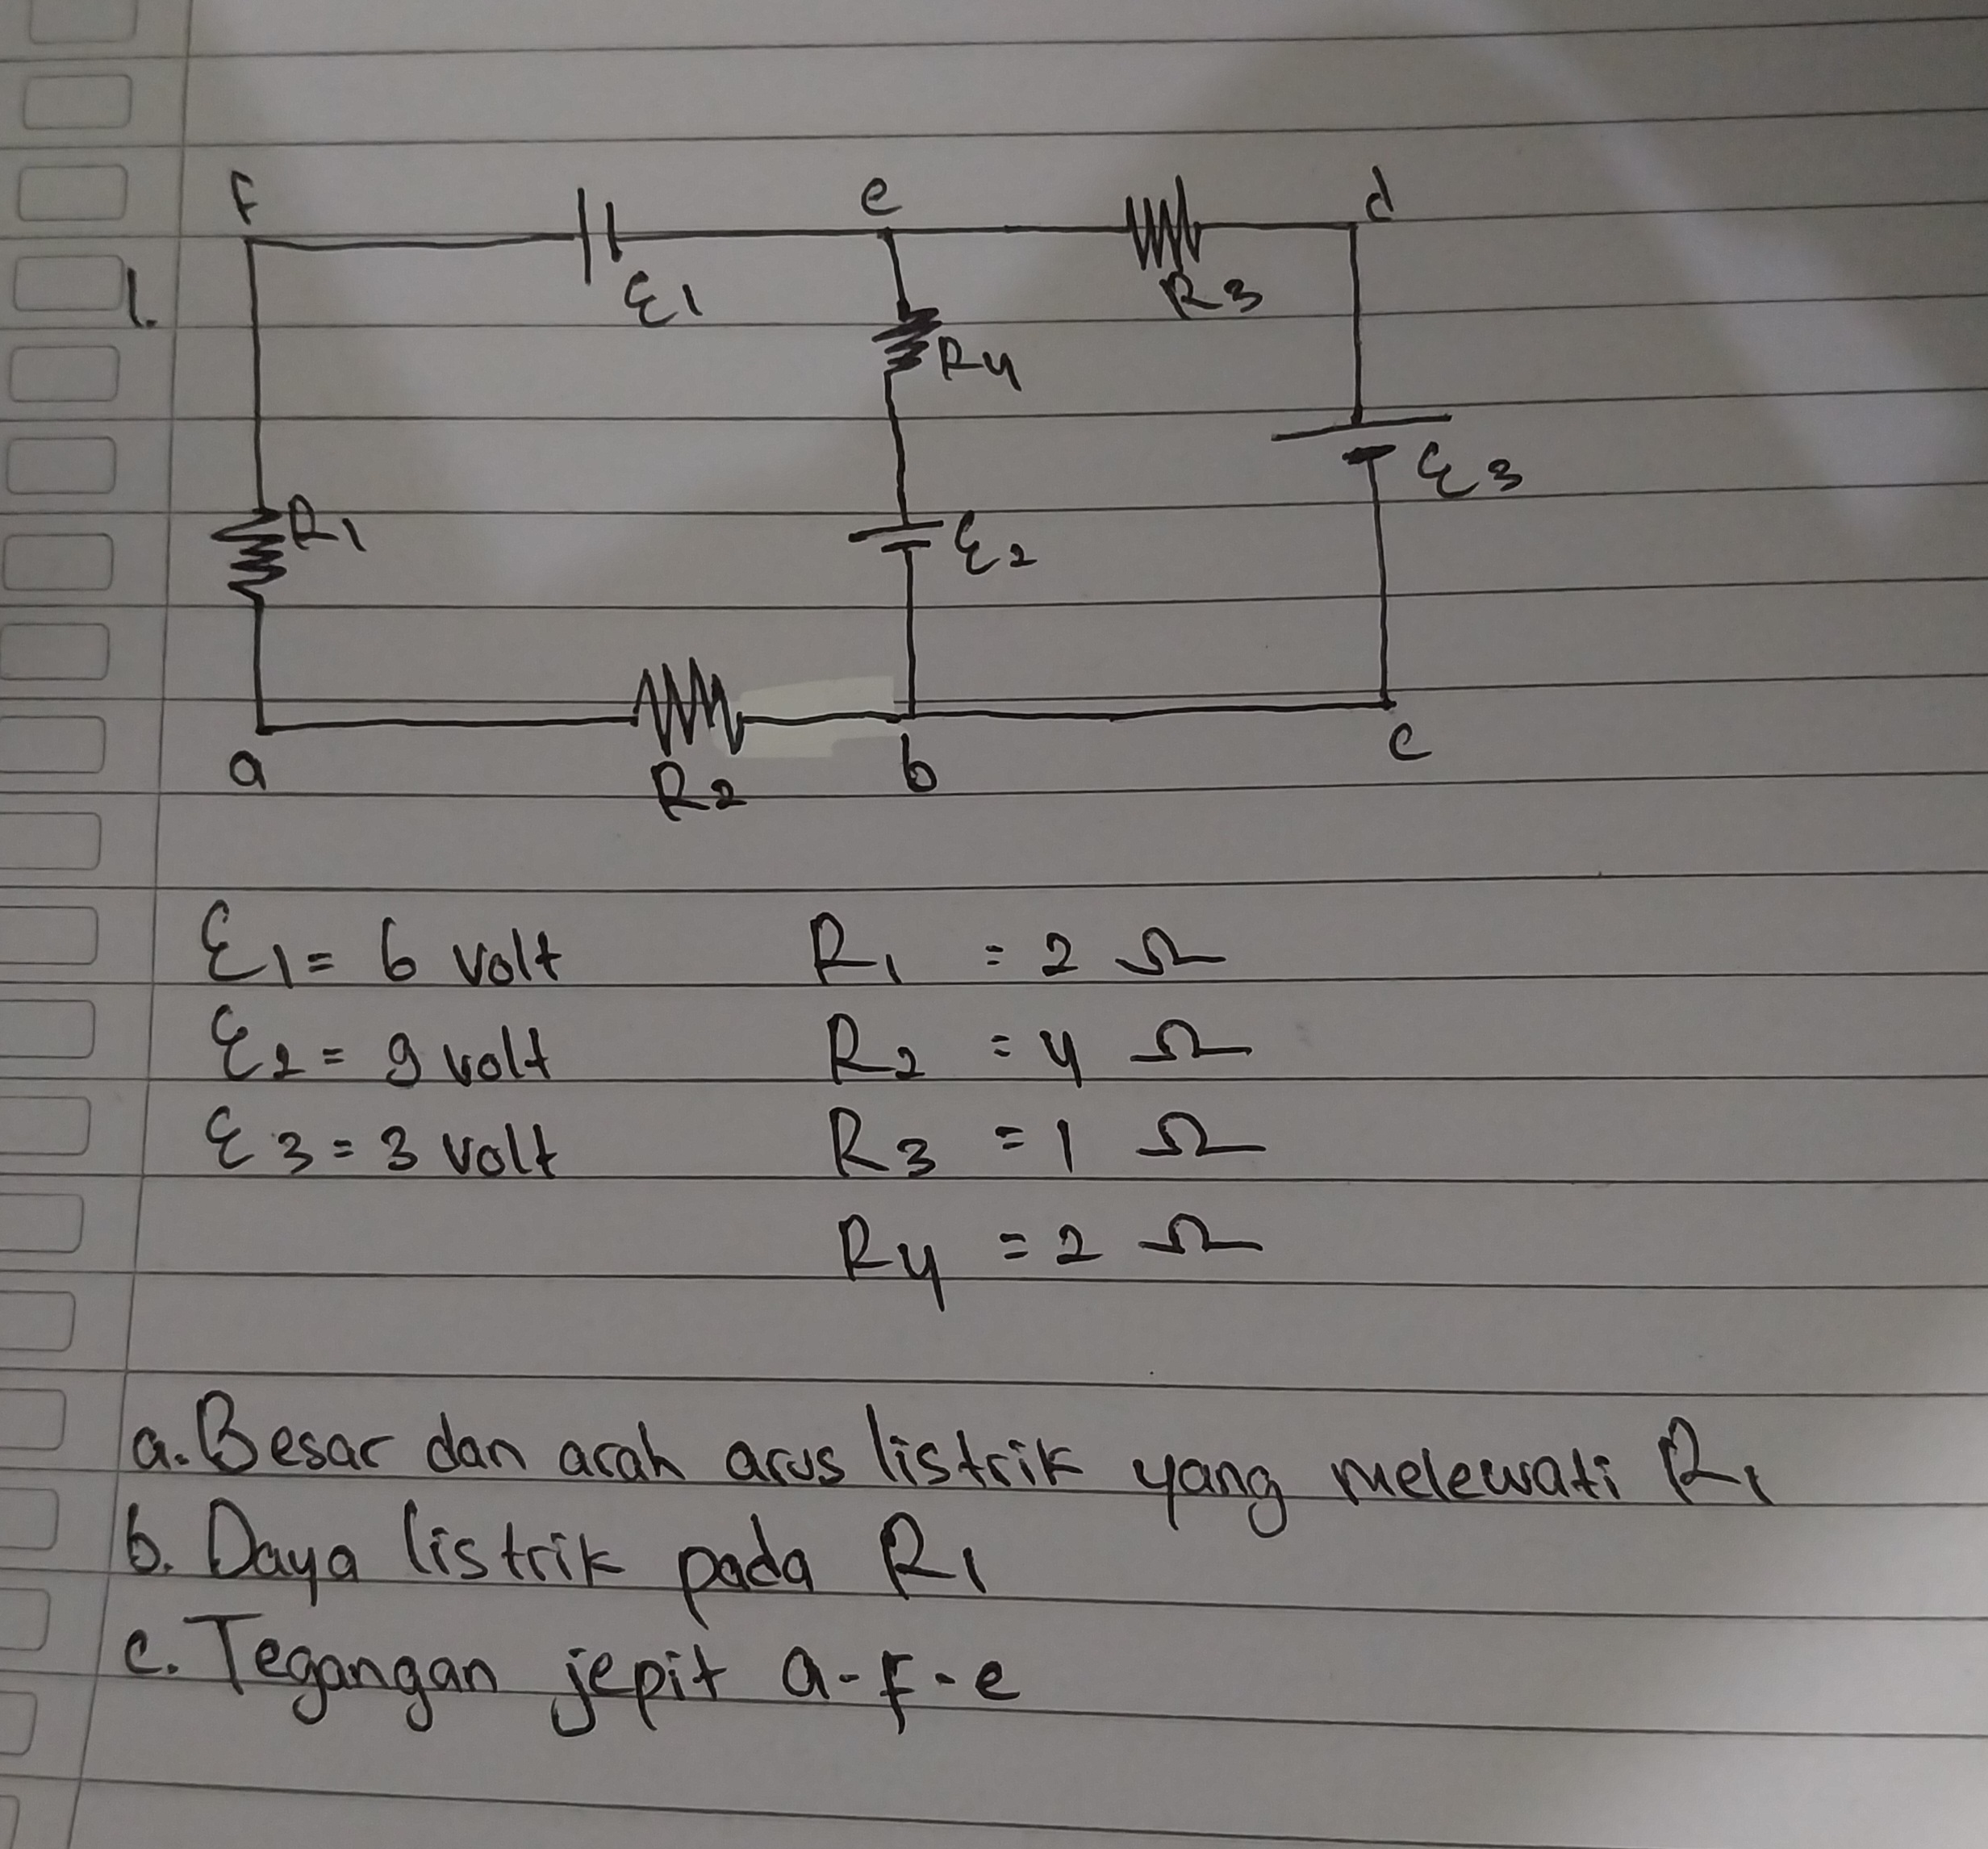 f e d
1.
ε1 R3
R4
ε3
R1 ε2
a R2 b c
ε1 = 6 volt R1 = 2 Ω
ε2 = 9 volt R2 = 4 Ω
ε3 = 3 volt R3 = 1 Ω
R4 = 2 Ω
a. Besar dan arah arus listrik yang melewati R1
b. Daya listrik pada R1
c. Tegangan jepit a-f-e